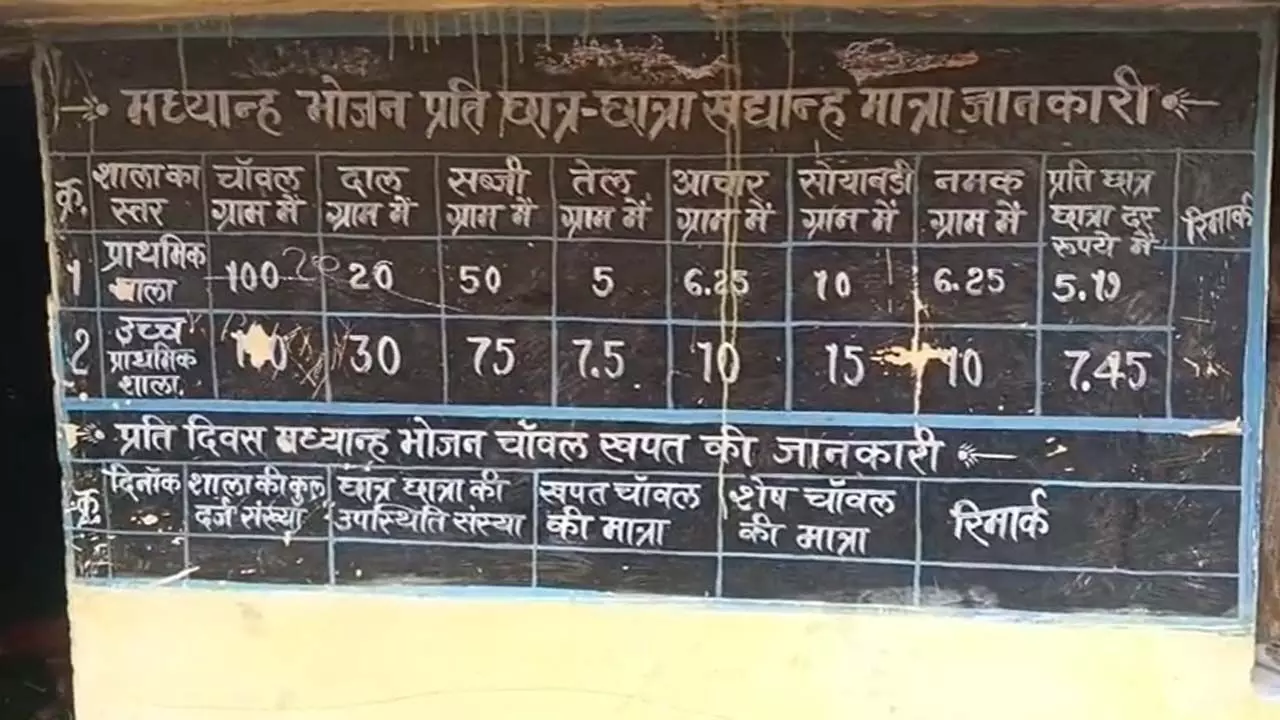 मध्यान्ह भोजन प्रति छात्र-छात्रा खद्यान्ह मात्रा जानकारी
क्र. शाला का स्तर चॉवल ग्राम में दाल ग्राम में सब्जी ग्राम में तेल ग्राम में आचार ग्राम में सोयाबडी ग्राम में नमक ग्राम में प्रति छात्र छात्रा दर रूपये में रिमार्क
1 प्राथमिक शाला 100 20 50 5 6.25 10 6.25 5.19
2 उच्च प्राथमिक शाला. 30 75 7.5 10 15 10 7.45
प्रति दिवस मध्यान्ह भोजन चॉवल खपत की जानकारी
क्र. दिनॉक शाला की कुल दर्ज संख्या छात्र छात्रा की उपस्थिति संस्या खपत चॉवल की मात्रा शेष चॉवल की मात्रा रिमार्क